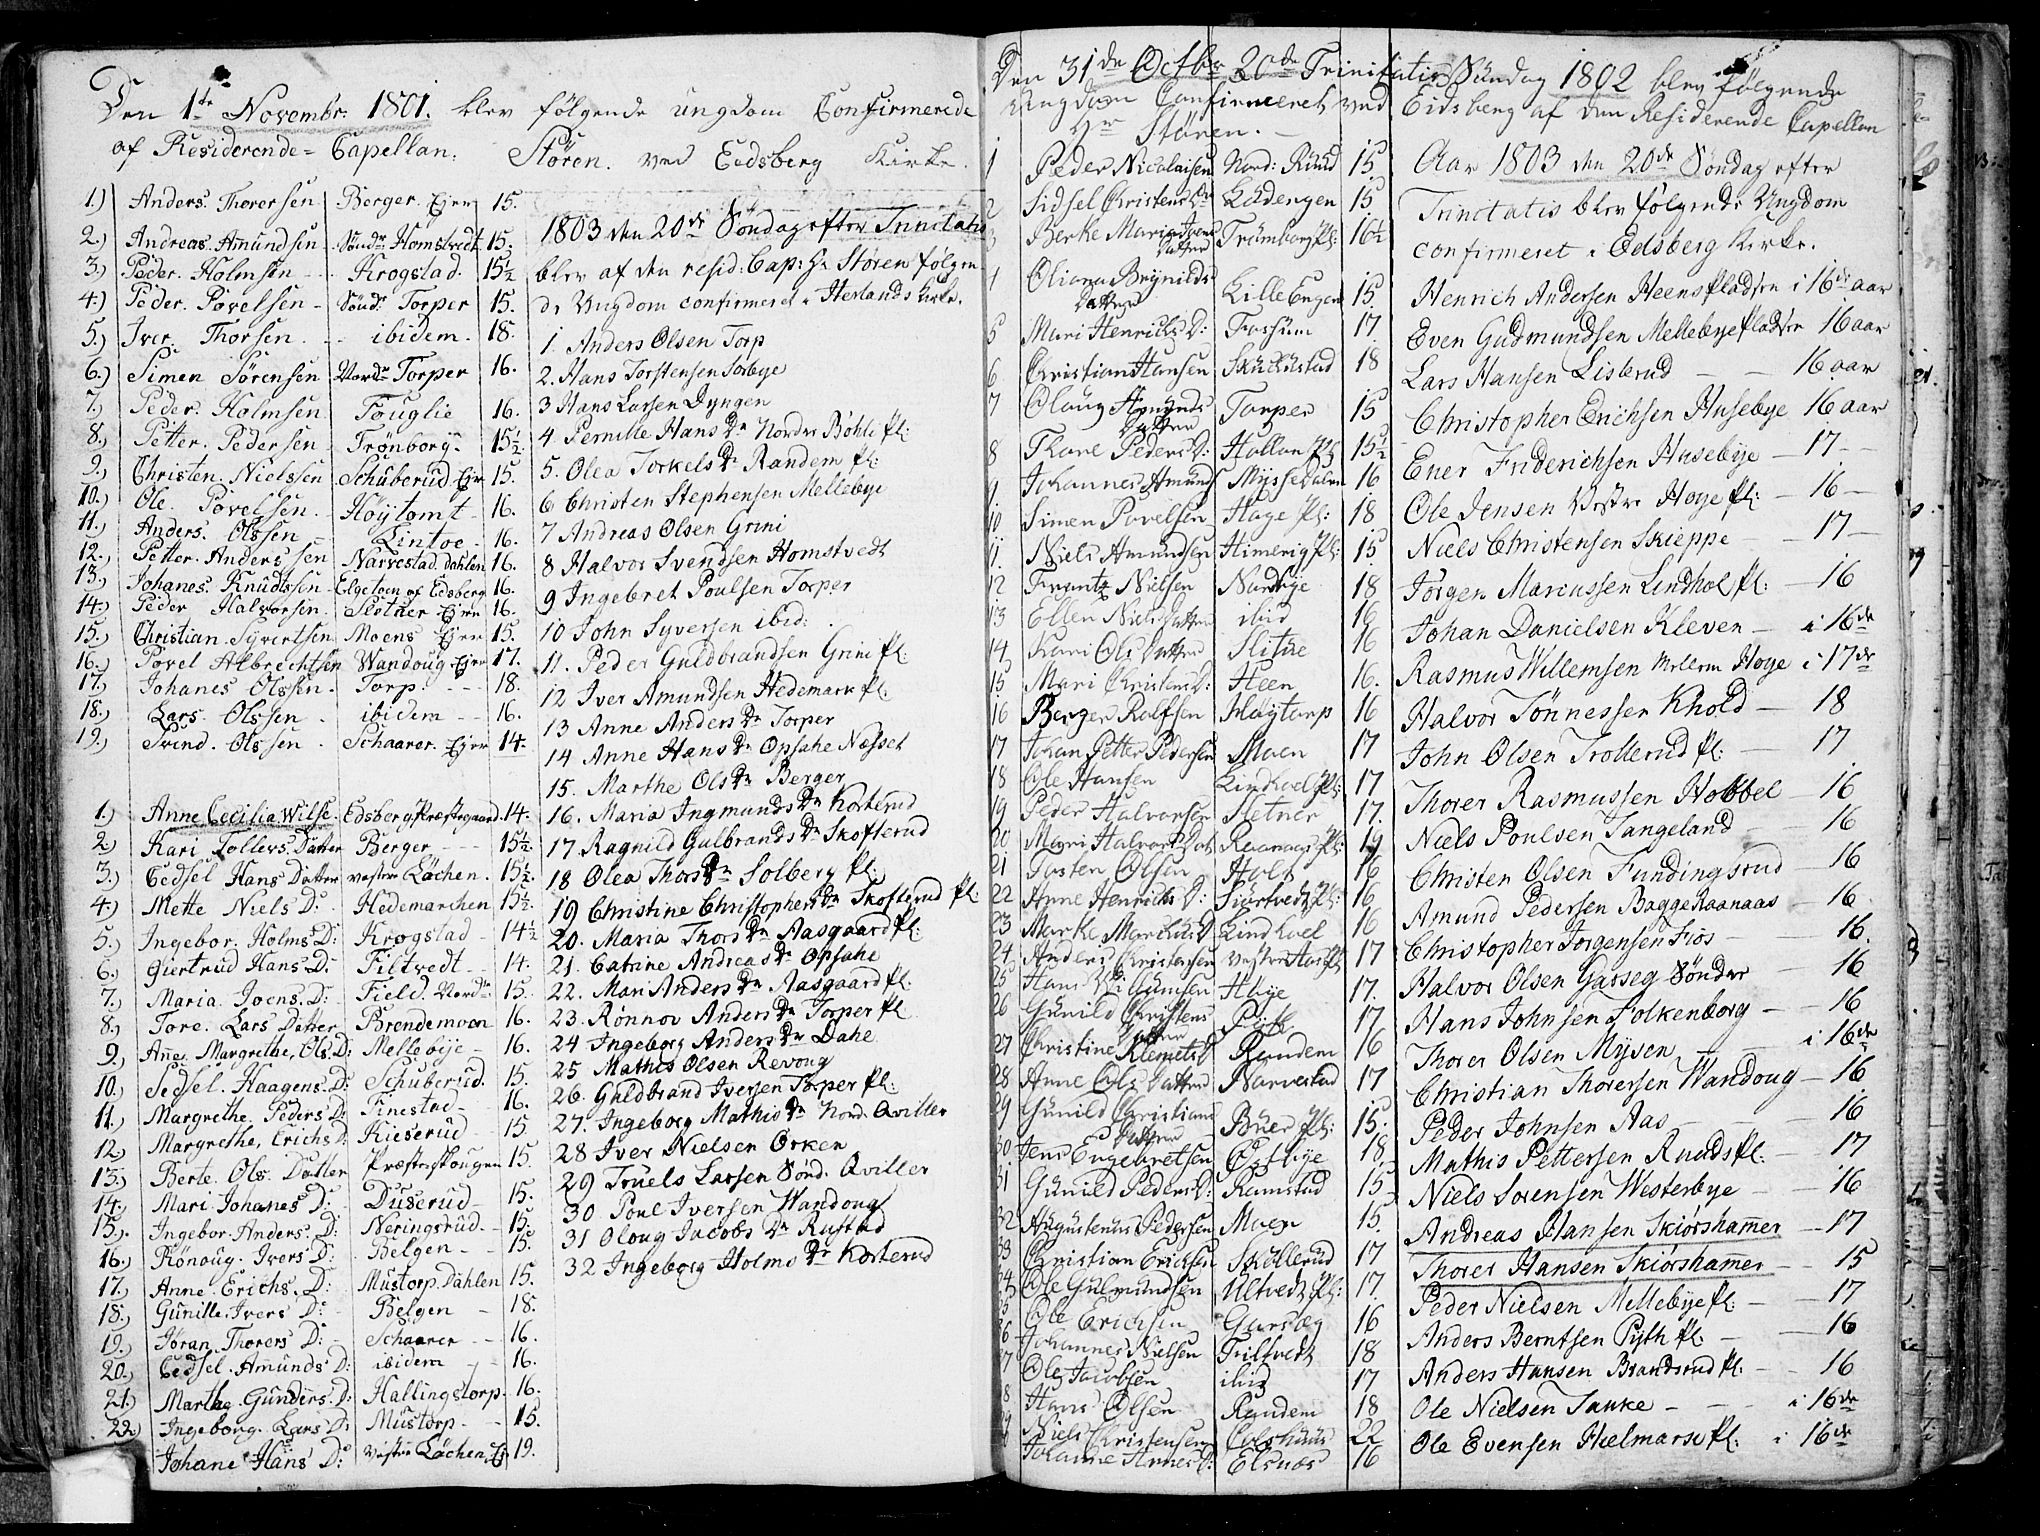 Den 1ste Novembr. 1801. blev følgende ungdom Confirmerede
af Residerende= Capellan. Stören. ved Eedsberg Kirke.
1.) Anders. Thorersen Berger. Ejer 15.
2.) Andreas. Amundsen Sönd: Homstvedt 15.
3.) Peder. Holmsen Krogstad. 15½
4.) Peder. Povelsen Sönd: Torper 15.
5.) Iver. Thorsen ibidem. 18.
6.) Simen Sörensen Nordr Torper 16.
7.) Peder. Holmsen Fouglie 16.
8.) Petter. Pedersen Trönborg. 15½.
9.) Christen. Nielssen Schuberud Ejer 15.
10.) Ole. Povelsen. Höytomt 16.
11.) Anders. Olssen Lintoe 16.
12.) Petter. Anderssen Narvestad. dahlen 16.
13.) Johanes. Knudssen Elgetoen af Edsberg 16.
14.) Peder Halvorsen Sletner Ejer 16.
15.) Christian. Syvertsen Moens Ejer 15.
16.) Povel Albrechtsen Wandoug Ejer 17.
17.) Johanes Olssen. Torp. 18.
18.) Lars. Olssen ibidem 16.
19.) Svend. Olssen Schaarer. Ejer 14.
1.) Anne Cecilia Wilse. Edsberg Præstegaard. 14.
2.) Kari Tollevs Datter Berger 15½.
3.) Cedsel Hans Datter vestre Lächen. 15½.
4.) Mette Niels D: Hedemarchen 15½.
5.) Ingebor. Holms D: Krogstad 14½
6.) Giertrud Hans D: Filtvedt 14.
7.) Maria. Joens. D: Field. Nordr 15.
8.) Tore. Lars Datter Brendemoen 16.
9.) Añe. Margrethe, Ols. D: Mellebÿe 16.
10.) Sedsel. Haagens. D: Schuberud. 15.
11.) Margrethe. Peders D: Finestad 16.
12.) Margrethe, Erichs D: Kieserud 15
13.) Berte. Ols. Datter Præsteskougen 15.
14.) Mari. Johanes D: Duserud 15.
15.) Ingebor. Anders. D: Neringsrud. 15.
16.) Rönoug. Ivers D: Belgen 15.
17.) Anne. Erichs. D: Mustorp. Dahlen 15.
18.) Gunille. Ivers D: Belgen 18.
19.) Jöran. Thorers D: Schaarer 16.
20.) Cedsel. Amunds D: ibidem 16.
21.) Marthe. Gunders. D: Hallingstorp. 16.
22.) Ingeborg. Lars D: Mustorp. 15.
Johane Hans D: vestre Lächen, Ej 19.
1803 den 20de Söndag efter Trinitatis
blev af den resid: Cap: Hr Stören følgen
de Ungdom confirmeret i Herlands Kirke.
1. Anders Olsen Torp
2. Hans Torstensen Sorbye
3 Hans Larsen Dyngen
4. Pernille Hans Dr Nordre Böhle Pl:
5. Olea Torkels Dr Randem pl:
6 Christen Stephensen Mellebye
7 Andreas Olsen Grini
8 Halvor Svendsen Homstvedt
9 Ingebret Poulsen Torper
10 John Syversen ibid:
11. Peder Guldbrandsen Grini Pl.
12 Iver Amundsen Hedemark pl.
13 Anne Anders Dr Torper
14 Anne Hans Dr Opsahe Nasset
15. Marthe Ols Dr Berger
16. Maria Ingmunds Dr Korterud
17 Ragnild Gulbrands Dr Skofterud
18 Olea Thors Dr Solberg pl:
19 Christine Christophers Dr Skofterud pl.
20. Maria Thors Dr Aasgaard pl.
21. Catrine Andreas Dr Opsahe
22. Mari Anders Dr Aasgaard pl.
23. Rönnov Anders Dr Torper pl
24 Ingeborg Anders Dr Dahe
25 Mathis Olsen Revoug
26. Guldbrand Iversen Torper pl.
27. Ingeborg Mathis Dr Nord. Qviller
28 Iver Nielsen Orken
29 Truels Larsen Sönd. Qviller
30 Poul Iversen Wandoug
31 Oloug Jacobs Dr Rustad
32 Ingeborg Holms Dr Korterud
Den 31de Octbr 20de Trinitatis Sündag 1802 blev følgende
Ungdom Confirmeret ved Eidsberg af den Residerende Capellan
Hr Stören.
1 Peder Nicolaisen Nord: Rüud 15.
2 Sidsel Christens Dr Ludengen 15
Berte Maria Ivers Datter Trømborg Pl: 16½
Oliana Brÿnilds Datter Lille Engen 15.
5 Mari Henrichs D: Fossum 17
6 Christian Hansen 18
7 Oloug Amunds Datter Torper 15
8 Thore Peders D: Hollen Pl 15½
9. Johannes Amunds Mysse Dalen 16
10 Simen Povelsen Hage Pl: 18
11. Niels Amundsen Himerig Pl: 15
12 Frantz Nielsen Nordbye 18
13 Ellen Niels Datter ibid 16
14 Kari Ols Datter Slitue 16
15 Mari Christens D: Heen 16.
16 Berger Rolfsen Høÿtorp 16
17 Johan Petter Pedersen Moen 17
18 Ole Hansen Lindhoel Pl: 17
19 Peder Halvorsen Sletner 17.
20 Mari Halvors Dat Raanaas Pl: 19
21 Tosten Olsen Holt 16
22 Anne Henrichs D: Siørtvedt Pl: 16
23 Marte Marchus D: Lindhoel 16
24 Anders Christensen Vestre Aas Pl 17
25 Hans Gunsen 17.
26 Günild Christens Datter 17
27 Christine Klemets D Randem 16
28 Anne Ols Datter Narvestad 17
29 Günild Christians Datter Büer Pl: 15.
30 Jens Engebretsen Østbye 18
31 Günild Peders D: Ramstad 15
32 Augustinus Pedersen Moen 15.
33 Christian Ericksen Skollerud 17
34 Ole Gulmundsen Ultvedt Pl: 17.
5 Ole Erichsen Garseg 16
6 Johannes Nielsen Filtvedt 18
7 Ole Jacobsen ibid 17
8 Hans Olsen Randem 18
Niels Christensen Colshuus 22
Johanne Hanses D: Elsnes 16
Aar 1803 den 20de Søndag efter
Trinitatis blev følgende Ungdom
confirmeret i Edsberg Kirke.
Henrich Andersen Heens Pladsen i 16de aar
Even Gudmundsen Mellebye Pladsen 16 aar
Lars Hansen Lislerud 16 aar
Christopher Erichsen Husebye 16 aar
Ener Friderichsen Husebye 17
Ole Jensen Vestre Hoye Pl: 16
Niels Christensen Skieppe 17
Jørgen Marcussen Lindhol pl: 16
Johan Danielsen Kleven i 16de
Rasmus Willemsen Mellem Hoye i 17de
Halvor Tönnessen Khold 18
John Olsen Trollerud Pl: 17
Thorer Rasmussen Hobbel 16
Niels Poulsen Tangeland 16
Christen Olsen Fundingsrud 16
Amund Pedersen Bagge Raanaas 16
Christopher Jorgensen Fiøs 16.
Halvor Olsen Gasseg Sønder 16
Hans Johnsen Folkenborg 16
Thorer Olsen Mysen i 16de
Christian Thorersen Wandoug 16
Peder Johnsen Aas 16
Mathis Pettersen Ruuds pl: 17
Niels Sorensen Westerbye 16
Andreas Hansen Skiørshamer 17
Thorer Hansen Skiørshamer 15
Peder Nielsen Mellebye pl: 17
Anders Berntsen Pyth pl: 16
Anders Hansen Brandsrud Pl: 16
Ole Nielsen Tanke i 16de
Ole Evensen Hælmark Pl: i 16de